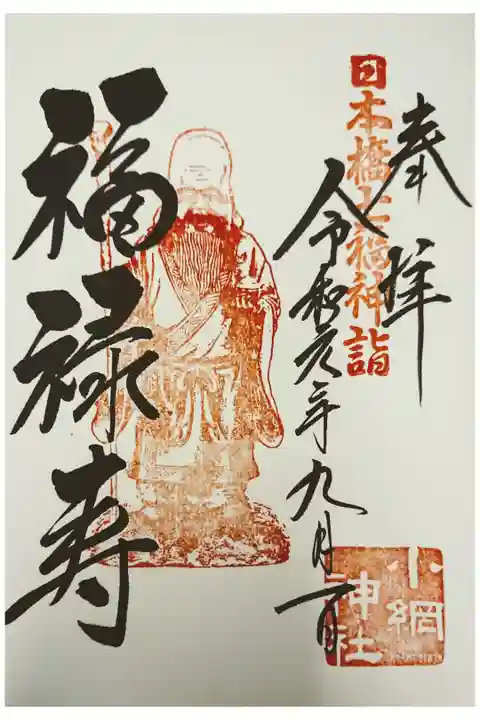 奉拝
日本橋七福神詣
令和元年九月一日
福禄寿
小網神社